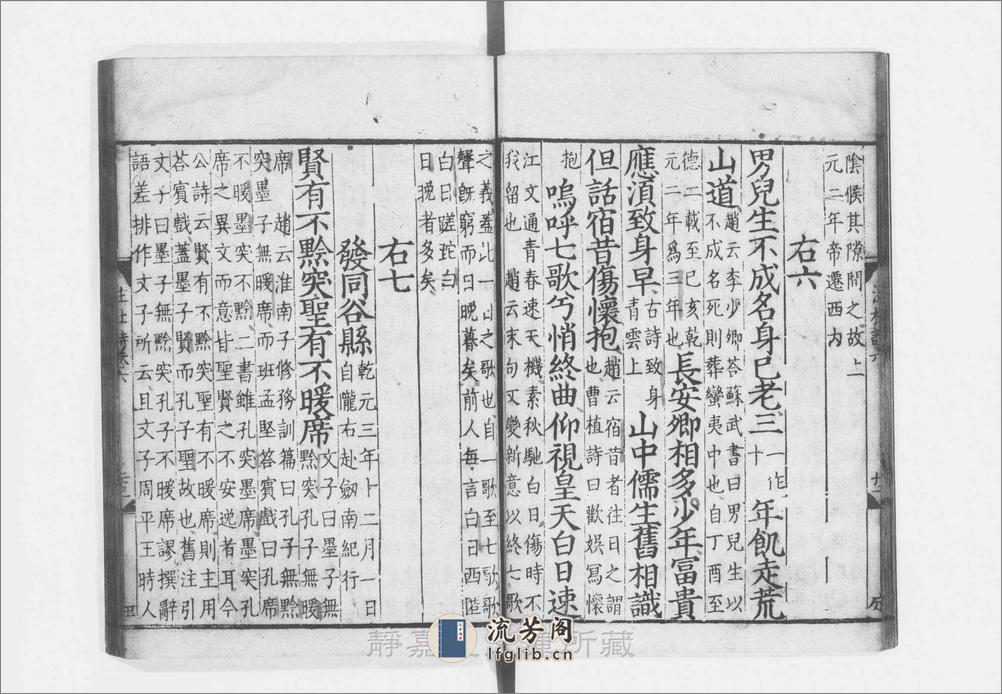 陰候其隙間之故上
元二年帝遷西内
右六
男兒生不成名身已老三一作十年飢走荒
山道趙云李少卿荅蘇武書曰男兒生以
不成名死則葬蠻夷中也自丁酉至
德二載至已亥乾
元二年為三年也長安卿相多少年富貴
應湏致身早古詩致身
青雲上山中儒生舊相識
但話宿昔傷懷抱趙云宿昔者往日之謂
也曹植詩曰歡娱寫懷
抱嗚呼七歌兮悄終曲仰視皇天白日速
江文通青春速天機素秋馳白日傷時不
我留也趙云末句又變新意以終七歌
之義蓋此一日之歌也自一歌至七歌歌
聲旣窮而曰晚暮矣前人每言白日西匿
白日蹉跎曰
日晚者多矣
右七
發同谷縣乾元三年十二月一日
自隴右赴劔南紀行
賢有不黔突聖有不暖席文子曰墨子無
黔突孔子無暖
席趙云淮南子修務訓篇曰孔子無黔
突墨子無暖席而班孟堅荅賓戲曰孔席
不暖墨突不黔二書雖孔突墨席墨突孔
席之異文而意皆聖賢之不安逆者耳今
公詩云賢有不黔突聖有不暖席則主用
荅賓戲蓋墨子賢而孔子聖故也舊注引
文子曰墨子無黔突孔子不暖席謬撰辭
語差排作文子所云且文子周平王時人
流芳阁
lfglib.cn